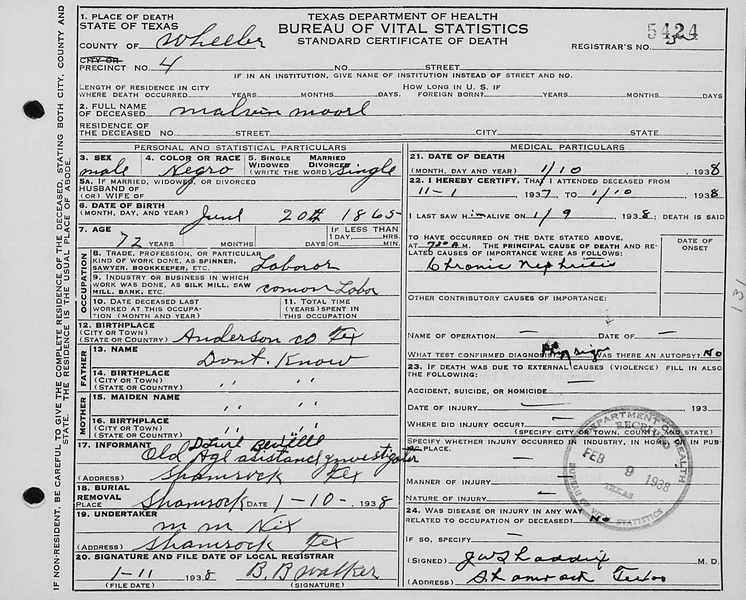 TEXAS DEPARTMENT OF HEALTH
BUREAU OF VITAL STATISTICS
STANDARD CERTIFICATE OF DEATH
1. PLACE OF DEATH
STATE OF TEXAS
COUNTY OF Wheeler
5424
REGISTRAR'S NO.
CITY OR
PRECINCT NO. 4 NO. STREET
IF IN AN INSTITUTION, GIVE NAME OF INSTITUTION INSTEAD OF STREET AND NO.
LENGTH OF RESIDENCE IN CITY
WHERE DEATH OCCURRED YEARS MONTHS DAYS
HOW LONG IN U. S. IF
FOREIGN BORN? YEARS MONTHS DAYS
2. FULL NAME
OF DECEASED malvin moore
RESIDENCE OF
THE DECEASED NO. STREET CITY STATE
PERSONAL AND STATISTICAL PARTICULARS
3. SEX
male
4. COLOR OR RACE
Negro
5. SINGLE MARRIED
WIDOWED DIVORCED
(WRITE THE WORD) Single
5A. IF MARRIED, WIDOWED, OR DIVORCED
HUSBAND OF
(OR) WIFE OF
6. DATE OF BIRTH
(MONTH, DAY, AND YEAR) June 20th 1865
7. AGE
72 YEARS MONTHS DAYS
IF LESS THAN
1 DAY
HOURS MIN.
OCCUPATION
8. TRADE, PROFESSION, OR PARTICULAR
KIND OF WORK DONE, AS SPINNER,
SAWYER, BOOKKEEPER, ETC. Laboror
9. INDUSTRY OR BUSINESS IN WHICH
WORK WAS DONE, AS SILK MILL, SAW
MILL, BANK, ETC. comon Labor
10. DATE DECEASED LAST
WORKED AT THIS OCCUPA-
TION (MONTH AND YEAR)
11. TOTAL TIME
(YEARS) SPENT IN
THIS OCCUPATION
12. BIRTHPLACE
(STATE OR COUNTRY) Anderson co Tex
FATHER
13. NAME Dont. Know
14. BIRTHPLACE
(CITY OR TOWN)
(STATE OR COUNTRY) " "
MOTHER
15. MAIDEN NAME " "
16. BIRTHPLACE
(CITY OR TOWN)
(STATE OR COUNTRY) " "
17. INFORMANT
Old Age asistance investigator
(ADDRESS) Shamrock Tex
18. BURIAL
REMOVAL
PLACE Shamrock DATE 1-10- 1938
19. UNDERTAKER
m m Nix
(ADDRESS) Shamrock Tex
20. SIGNATURE AND FILE DATE OF LOCAL REGISTRAR
1-11 1938 B. B Walker
(FILE DATE) (SIGNATURE)
MEDICAL PARTICULARS
21. DATE OF DEATH
(MONTH, DAY AND YEAR) 1/10 1938
22. I HEREBY CERTIFY, THAT I ATTENDED DECEASED FROM
11-1 1937 TO 1/10 1938
I LAST SAW HIM ALIVE ON 1/9 1938; DEATH IS SAID
TO HAVE OCCURRED ON THE DATE STATED ABOVE,
AT 7 A.M. THE PRINCIPAL CAUSE OF DEATH AND RE-
LATED CAUSES OF IMPORTANCE WERE AS FOLLOWS:
DATE OF
ONSET
Chronic Nephritis
OTHER CONTRIBUTORY CAUSES OF IMPORTANCE:
NAME OF OPERATION — DATE OF —
WHAT TEST CONFIRMED DIAGNOSIS WAS THERE AN AUTOPSY? No
23. IF DEATH WAS DUE TO EXTERNAL CAUSES (VIOLENCE) FILL IN ALSO
THE FOLLOWING:
ACCIDENT, SUICIDE, OR HOMICIDE —
DATE OF INJURY — 193
WHERE DID INJURY OCCUR? —
(SPECIFY CITY OR TOWN, COUNTY, AND STATE)
SPECIFY WHETHER INJURY OCCURRED IN INDUSTRY, IN HOME, OR IN PUB-
PLACE. —
MANNER OF INJURY —
NATURE OF INJURY —
24. WAS DISEASE OR INJURY IN ANY WAY
RELATED TO OCCUPATION OF DECEASED? No
IF SO, SPECIFY —
(SIGNED) J W Shaddix M. D.
(ADDRESS) Shamrock Texas
DEPARTMENT OF HEALTH
RECEIVED
FEB 9 1938
TEXAS
BUREAU OF VITAL STATISTICS
131
IF NON-RESIDENT, BE CAREFUL TO GIVE THE COMPLETE RESIDENCE OF THE DECEASED, STATING BOTH CITY, COUNTY AND
STATE. THE RESIDENCE IS THE USUAL PLACE OF ABODE.